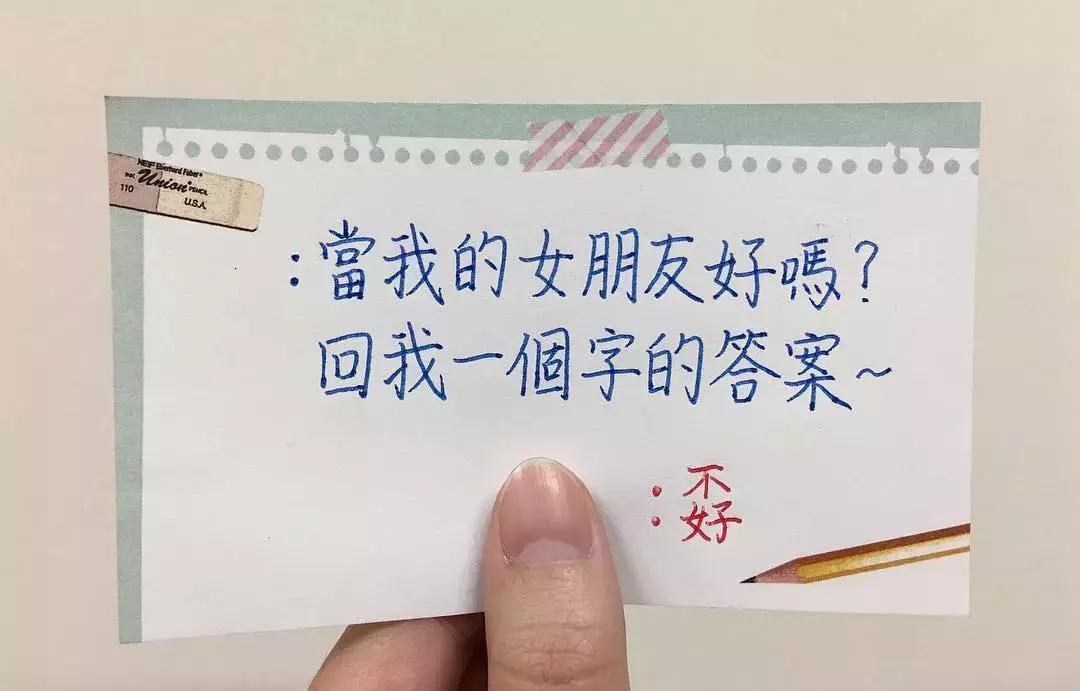 NEF Eberhard Faber
Union PENCIL
110
U.S.A.
:當我的女朋友好嗎?
回我一個字的答案~
:孬